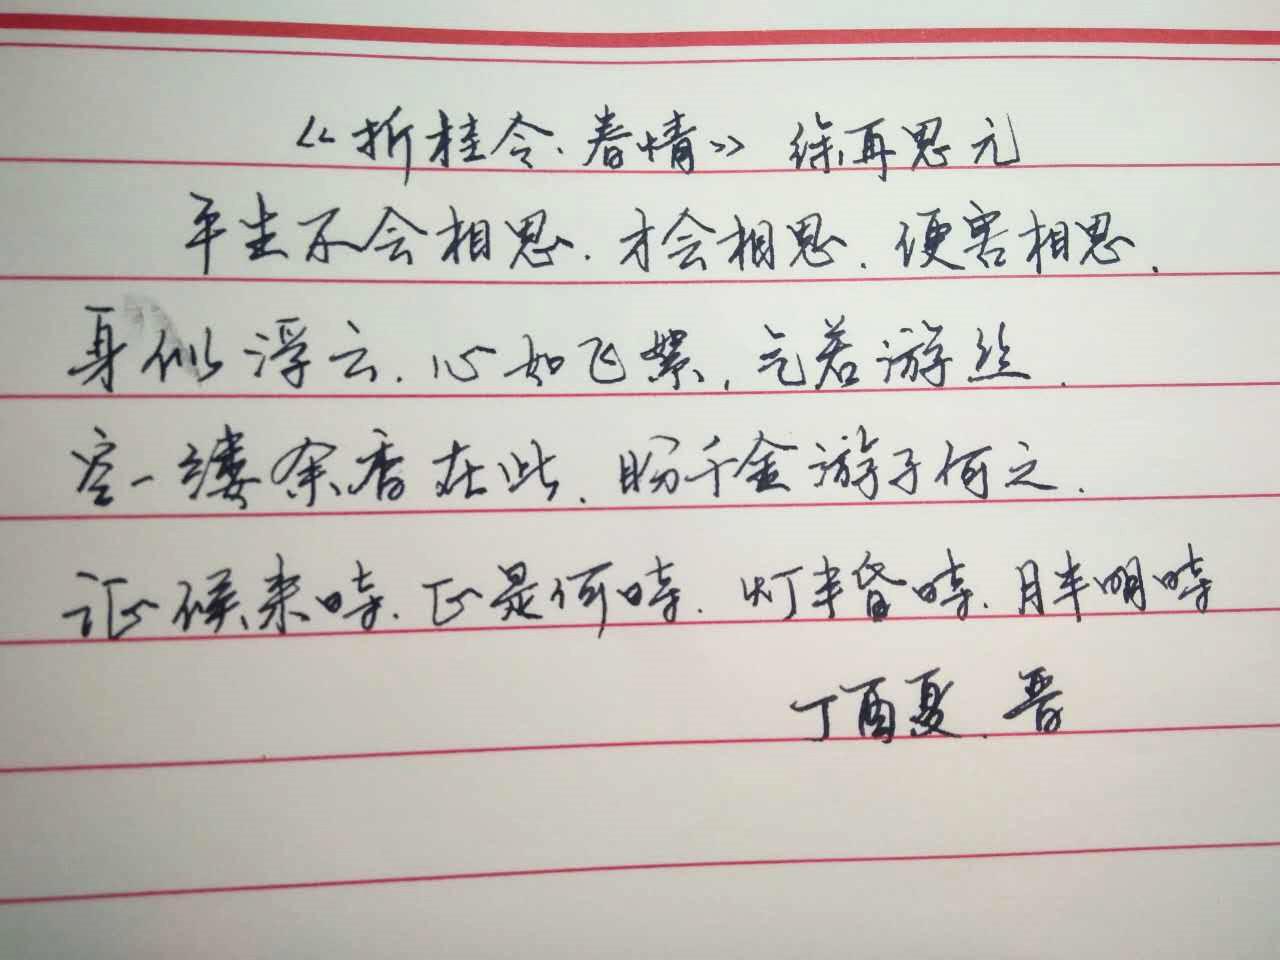 《折桂令·春情》 徐再思 元
平生不会相思.才会相思.便害相思.
身似浮云.心如飞絮,气若游丝.
空一缕余香在此.盼千金游子何之.
证候来时.正是何时.灯半昏时.月半明时
丁酉夏.晋